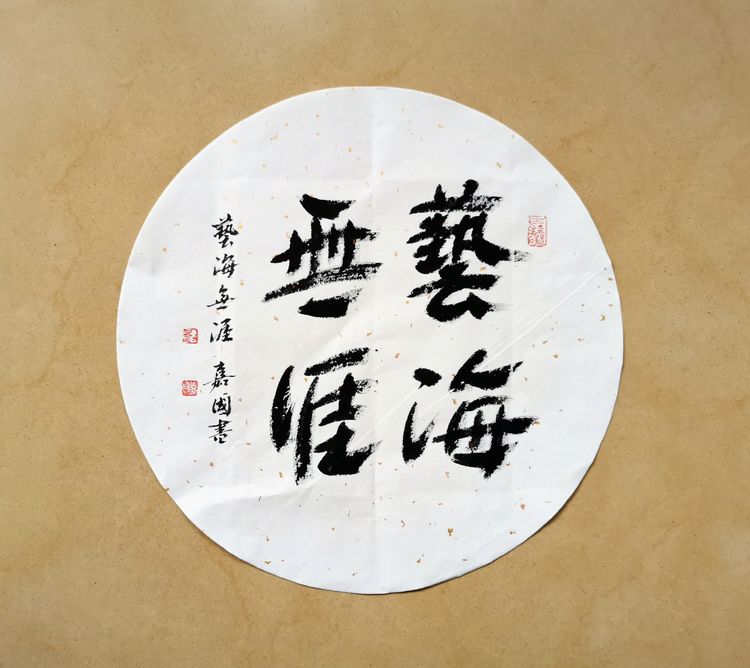 藝海
無涯
藝海無涯 嘉國書